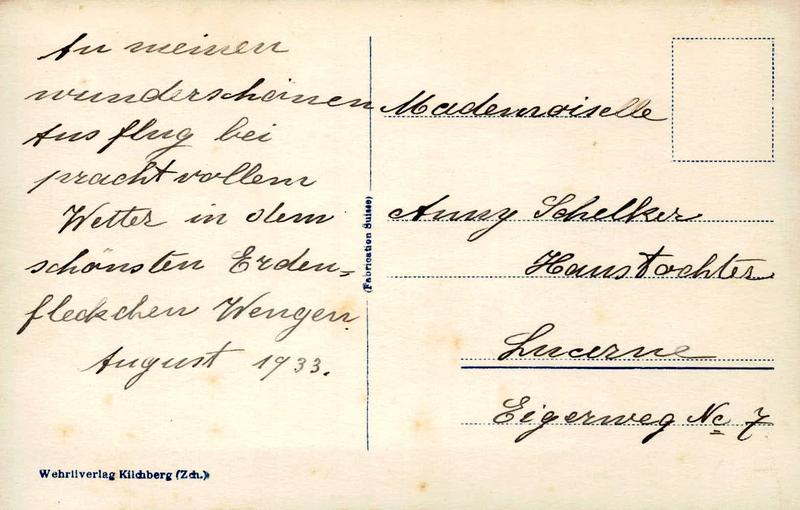 An meinen
wunderschönen
Ausflug bei
prachtvollem
Wetter in dem
schönsten Erden=
fleckchen Wengen
August 1933.
Mademoiselle
Anny Schelker
Haustochter
Lucerne
Eigerweg No 7
(Fabrication Suisse)
Wehrliverlag Kilchberg (Zch.)